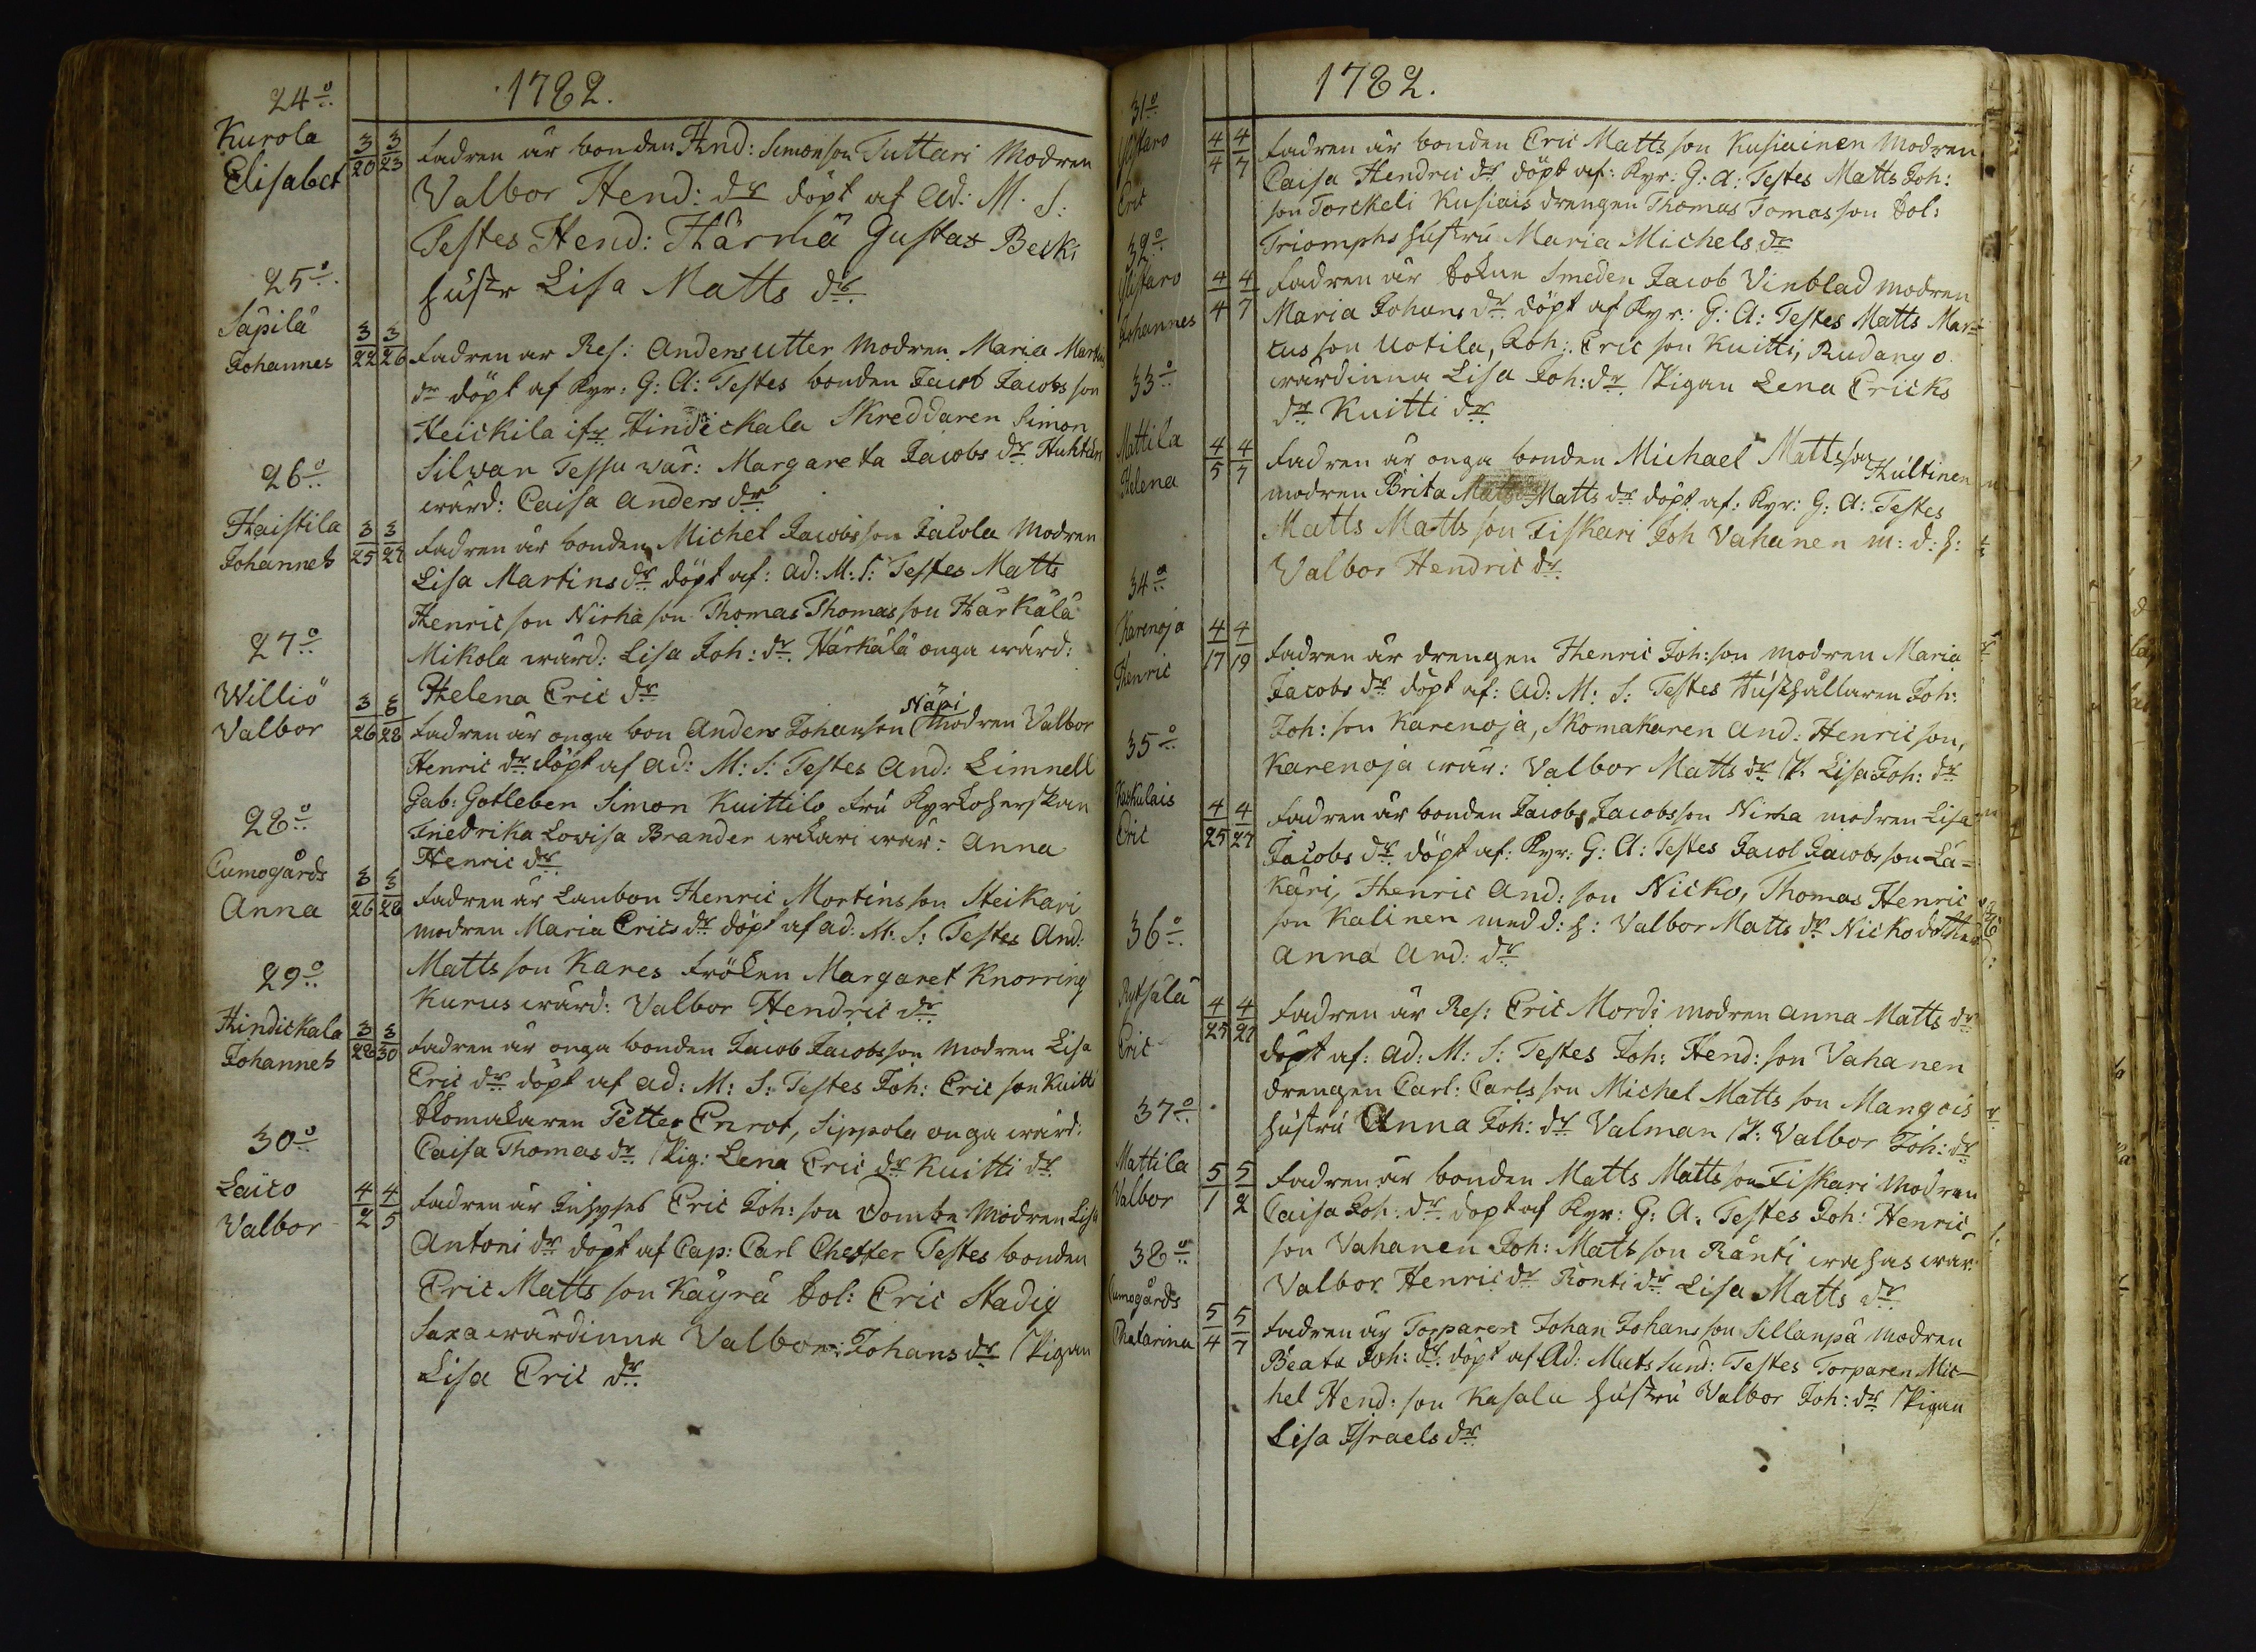 1782.
24o
Kurola
Elisabet
3/20 3/23
Fadren är bonden Hnd: Simonson Tuttari Modren
Valbor Hend: dr döpt af Ad: M. S:
Testes Hend: Härmä Gustaf Beck:
hustr Lisa Matts dr
25o
Säpilä
Johannes
3/22 3/26
Fadren är Res: Anders utter Modren Maria Martins
dr döpt af Kyr: G: A: Testes bonden Jacob Jacobs son
Heickila ifr Hindickala Skreddaren Simon
Silwan Tessu wär: Margareta Jacobs dr Huhtari
wärd: Caisa Anders dr
26o
Haistila
Johannes
3/25 3/27
Fadren är bonden Michel Jacobsson Jacola Modren
Lisa Martins dr döpt af: Ad: M: S: Testes Matts
Henric son Nirha son Thomas Thomas son Härkälä
Mikola wärd: Lisa Joh: dr Härkälä onga wärd:
Helena Eric dr
27o
Williö
Valbor
3/26 3/28
Fadren är onga bon Anders Johanson Näpi Modren Valbor
Henric dr döpt af Ad: M: S: Testes And: Limnell
Gab: Gotleben Simon Kuittilo fru Kyrkoherskan
Friedrika Lovisa Brander wär: Anna
Henric dr
28o
Cumogårds
Anna
3/26 3/28
Fadren är Lanbon Henric Mortins son Steikari
modren Maria Erics dr döpt af Ad: M: S: Testes And:
Matts son Kares Fröken Margaret Knorring
Kurus wärd: Valbor Hendric dr
29o
Hindickala
Johannes
3/28 3/30
Fadren är onga bonden Jacob Jacobsson Modren Lisa
Eric dr döpt af Ad: M: S: Testes Joh: Eric son Kuitti
Skomakaren Petter Enrot, Sippola onga wärd:
Caisa Thomas dr Pig: Lena Eric dr Kuitti dr
30o
Laico
Valbor
4/2 4/5
Fadren är Inhyses Eric Joh: son Dombe Modren Lisa
Antoni dr döpt af Cap: Carl Cheffer Testes bonden
Eric Matts son Käyrä Sol: Eric Stadig
Saxa wärdinna Valbor: Johans dr Pigan
Lisa Eric dr
1782.
31o
Sistaro
Eric
4/4 4/7
Fadren är bonden Eric Matts son Kusiainen Modren
Caisa Hendric dr döpt af: Kyr: G: A: Testes Matts Joh:
son Torckeli Kusiais drengen Thomas Tomas son Sol:
Triomphs hustru Maria Michels dr
32o
Sistaro
Johannes
4/4 4/7
Fadren är Sokne Smeden Jacob Vinblad modren
Maria Johans dr döpt af Kyr: G: A: Testes Matts Mar=
cus son Uotila, Joh: Eric son Kuitti, Rudango
wärdinna Lisa Joh: dr Pigan Lena Ericks
dr Kuitti dr
33o
Mattila
Helena
4/5 4/7
Fadren är onga bonden Michael Matts son Hultinen
modren Brita Matts dr döpt af: Kyr: G: A: Testes
Matts Matts son Fiskari Joh Vahanen m: d: h:
Valbor Hendric dr
34o
Karenoja
Henric
4/17 4/19
Fadren är drengen Henric Joh: son modren Maria
Jacobs dr döpt af: Ad: M: S: Testes Hushållaren Joh:
Joh: son Karenoja, Skomakaren And: Henric son,
Karenoja wär: Valbor Matts dr P. Lisa Joh: dr
35o
Kaskulais
Eric
4/25 4/27
Fadren är bonden Jacobs Jacobsson Nirha modren Lisa
Jacobs dr döpt af: Kyr: G: A: Testes Jacob Jacobs son Lä=
käri, Henric And: son Nicko, Thomas Henric
son Kalinen med d: h: Valbor Matts dr Nicko dotter
Anna And: dr
36o
Rytsälä
Eric
4/25 4/27
Fadren är Res: Eric Mordi modren Anna Matts dr
döpt af: Ad: M: S: Testes Joh: Hend: son Vahanen
drengen Carl: Carls son Michel Matts son Mangois
hustru Anna Joh: dr Valman P: Valbor Joh: dr
37o
Mattila
Valbor
5/1 5/2
Fadren är bonden Matts Matts son Fiskari Modren
Caisa Joh: dr döpt af Kyr: G: A. Testes Joh: Henric
son Vahanen Joh: Mats son Ränti wahas wär.
Valbor Henric dr Ronti dr Lisa Matts dr
38o
Cumogårds
Chatarina
5/4 5/7
Fadren är Torparen Johan Johans son Sillanpä Modren
Beata Joh: dr döpt af Ad: Mats Sund: Testes Torparen Mic-
hel Hend: son Kasala hustru Valbor Joh: dr Pigan
Lisa Israels dr